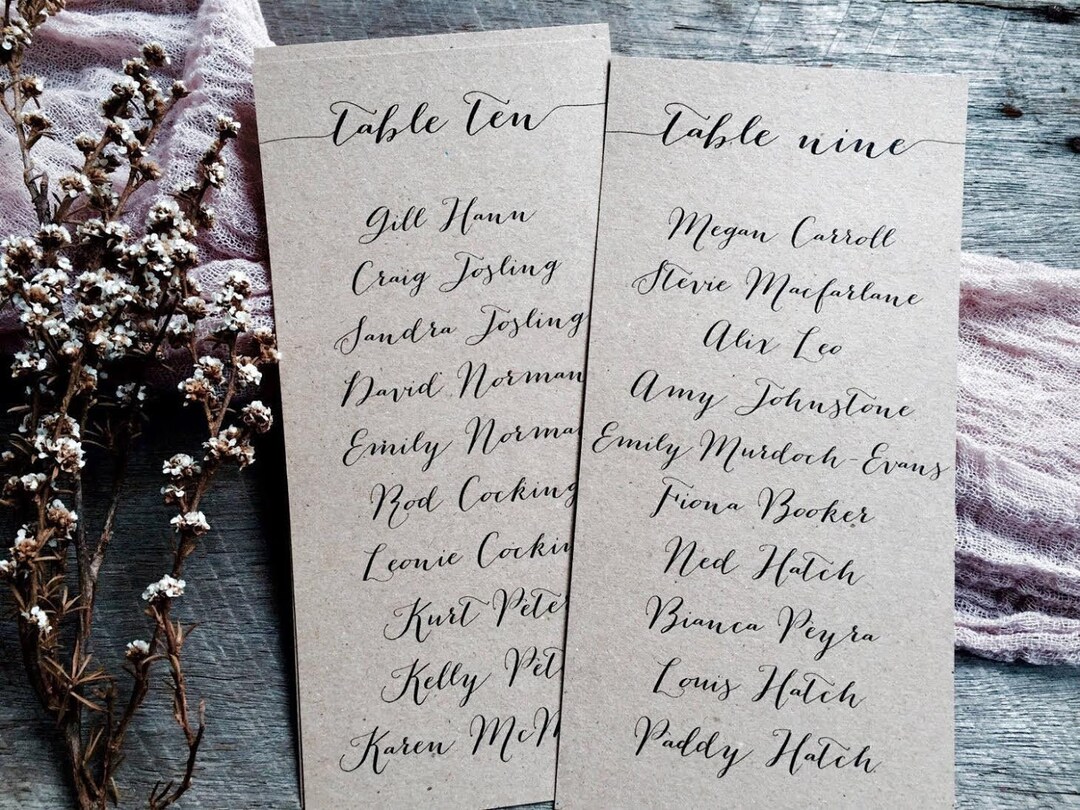 Table Ten
Gill Hann
Craig Josling
Sandra Josling
David Norman
Emily Norma
Rod Cocking
Leonie Cockin
Kurt Pete
Kelly Pet
Karen McN
Table nine
Megan Carroll
Stevie Macfarlane
Alix Leo
Amy Johnstone
Emily Murdoch-Evans
Fiona Booker
Ned Hatch
Bianca Peyra
Louis Hatch
Paddy Hatch